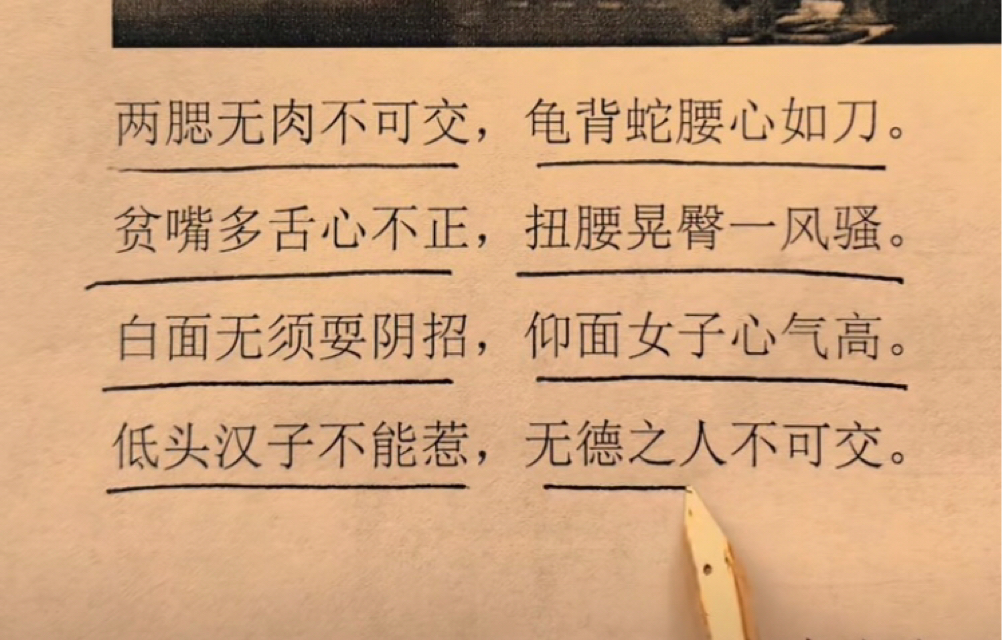 两腮无肉不可交，龟背蛇腰心如刀。
贫嘴多舌心不正，扭腰晃臀一风骚。
白面无须耍阴招，仰面女子心气高。
低头汉子不能惹，无德之人不可交。